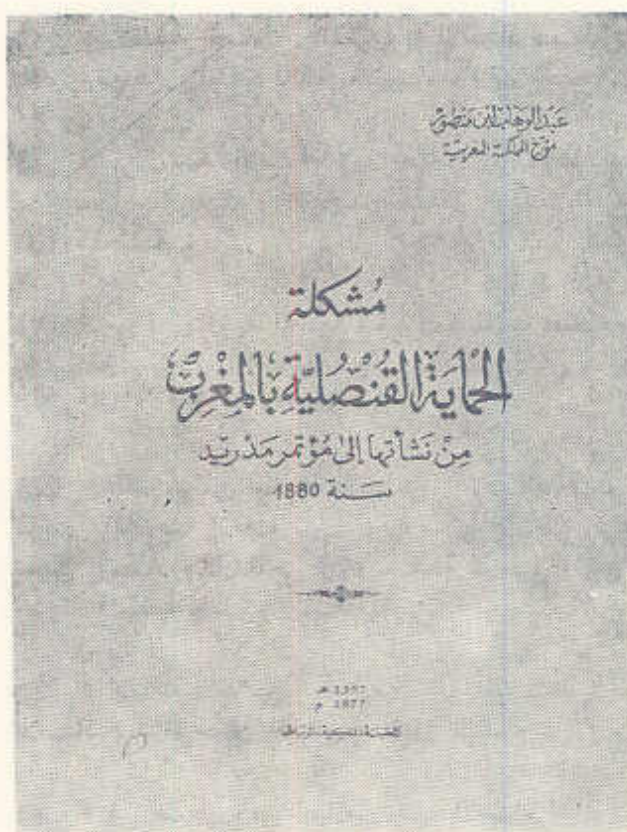 عبد الوهاب ابن منصور
مؤرخ المملكة المغربية
مُشكلة
الحماية القُنصُلية بالمغرب
مِنْ نَشأتها إلى مُؤتمر مَدْريد
سَنة 1880
1397 هـ
1977 م
المطبعة الملكية الرباط